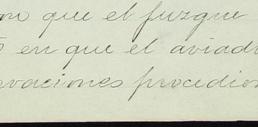 que el juzgue
en que el aviad
vaciones procedio